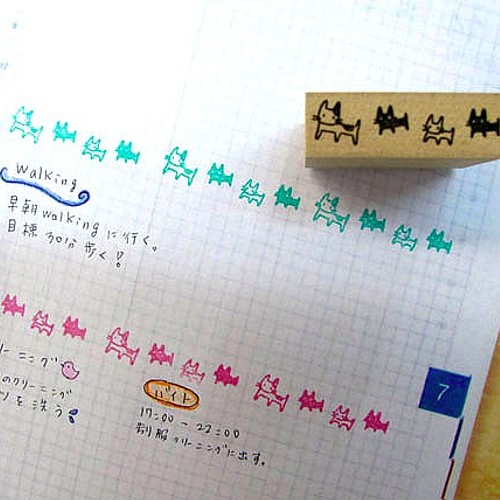 Walking
早朝walkingに行く。
目標30分歩く!
ーニング
のクリーニング
ツを洗う
バイト
17:00~22:00
制服クリーニングに出す。
7